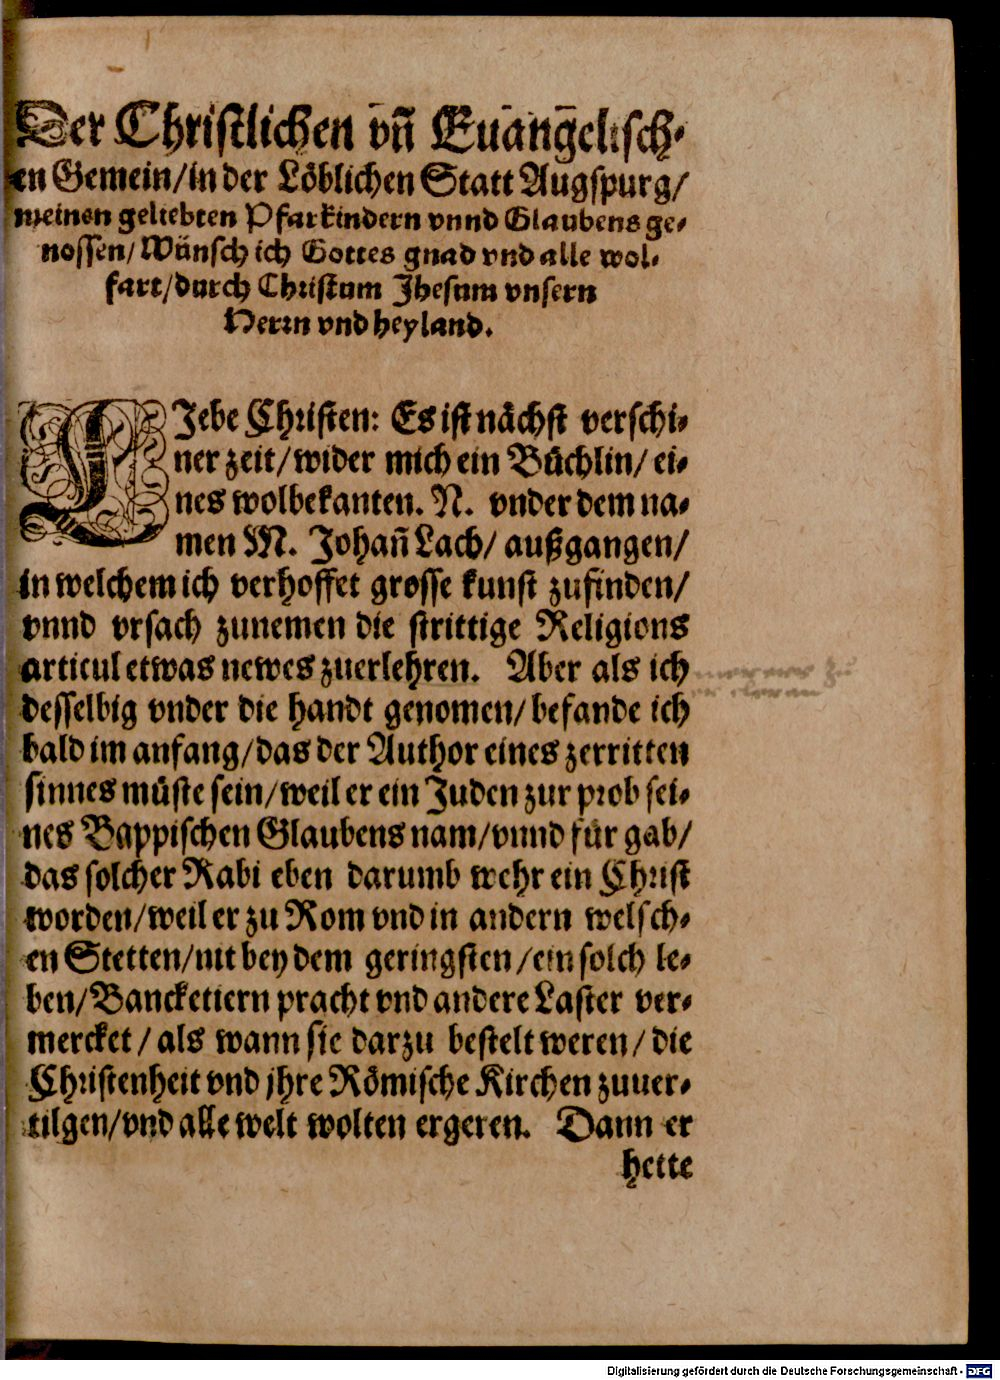 Der Christlichen vñ Euangelisch⸗
en Gemein/in der Löblichen Statt Augspurg/
meinen geliebten Pfarkindern vnnd Glaubens ge⸗
nossen/Wünsch ich Gottes gnad vnd alle wol⸗
fart/durch Christum Jhesum vnsern
Herrn vnd heyland.
LJebe Christen: Es ist nächst verschi⸗
ner zeit/wider mich ein Büchlin/ ei⸗
nes wolbekanten. N. vnder dem na⸗
men M. Johañ Lach/ außgangen/
in welchem ich verhoffet grosse kunst zufinden/
vnnd vrsach zunemen die strittige Religions
articul etwas newes zuerlehren. Aber als ich
desselbig vnder die handt genomen/befande ich
bald im anfang/das der Author eines zerritten
sinnes müste sein/weil er ein Juden zur prob sei⸗
nes Bappischen Glaubens nam/vnnd für gab/
das solcher Rabi eben darumb wehr ein Christ
worden/weil er zu Rom vnd in andern welsch⸗
en Stetten/nit bey dem geringsten/ein solch le⸗
ben/Banckettern pracht vnd andere Laster ver⸗
mercket/ als wann sie darzu bestelt weren/ die
Christenheit vnd jhre Römische Kirchen zuuer⸗
tilgen/vnd alle welt wolten ergeren. Dann er
hette
Digitalisierung gefördert durch die Deutsche Forschungsgemeinschaft - DFG